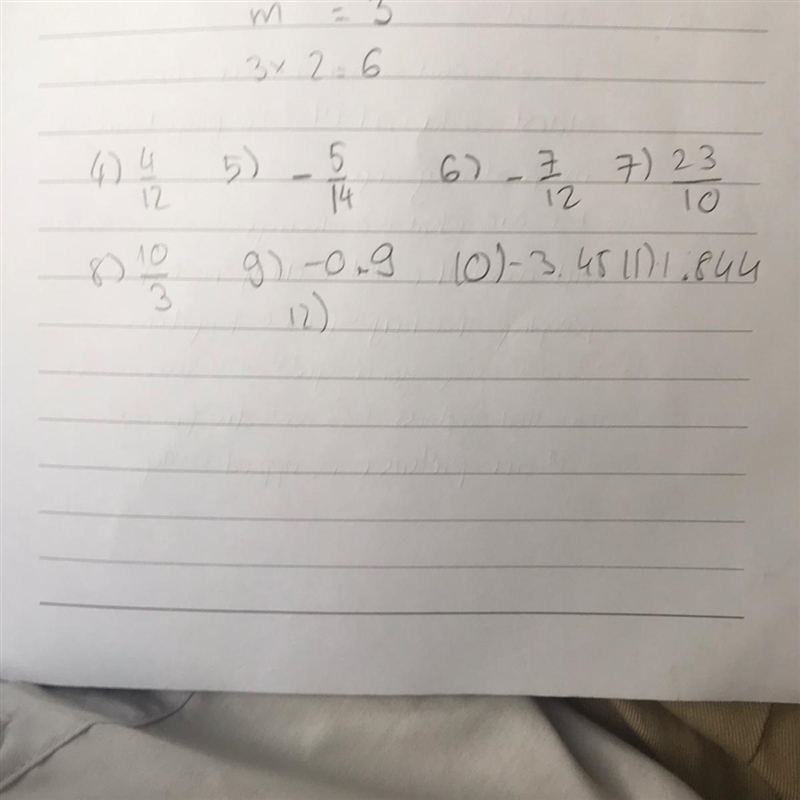 m = 3
3 × 2 = 6
4) 4/12 5) - 5/14 6) - 7/12 7) 23/10
8) 10/3 9) -0.9 10) -3.45 11) 1.844
12)